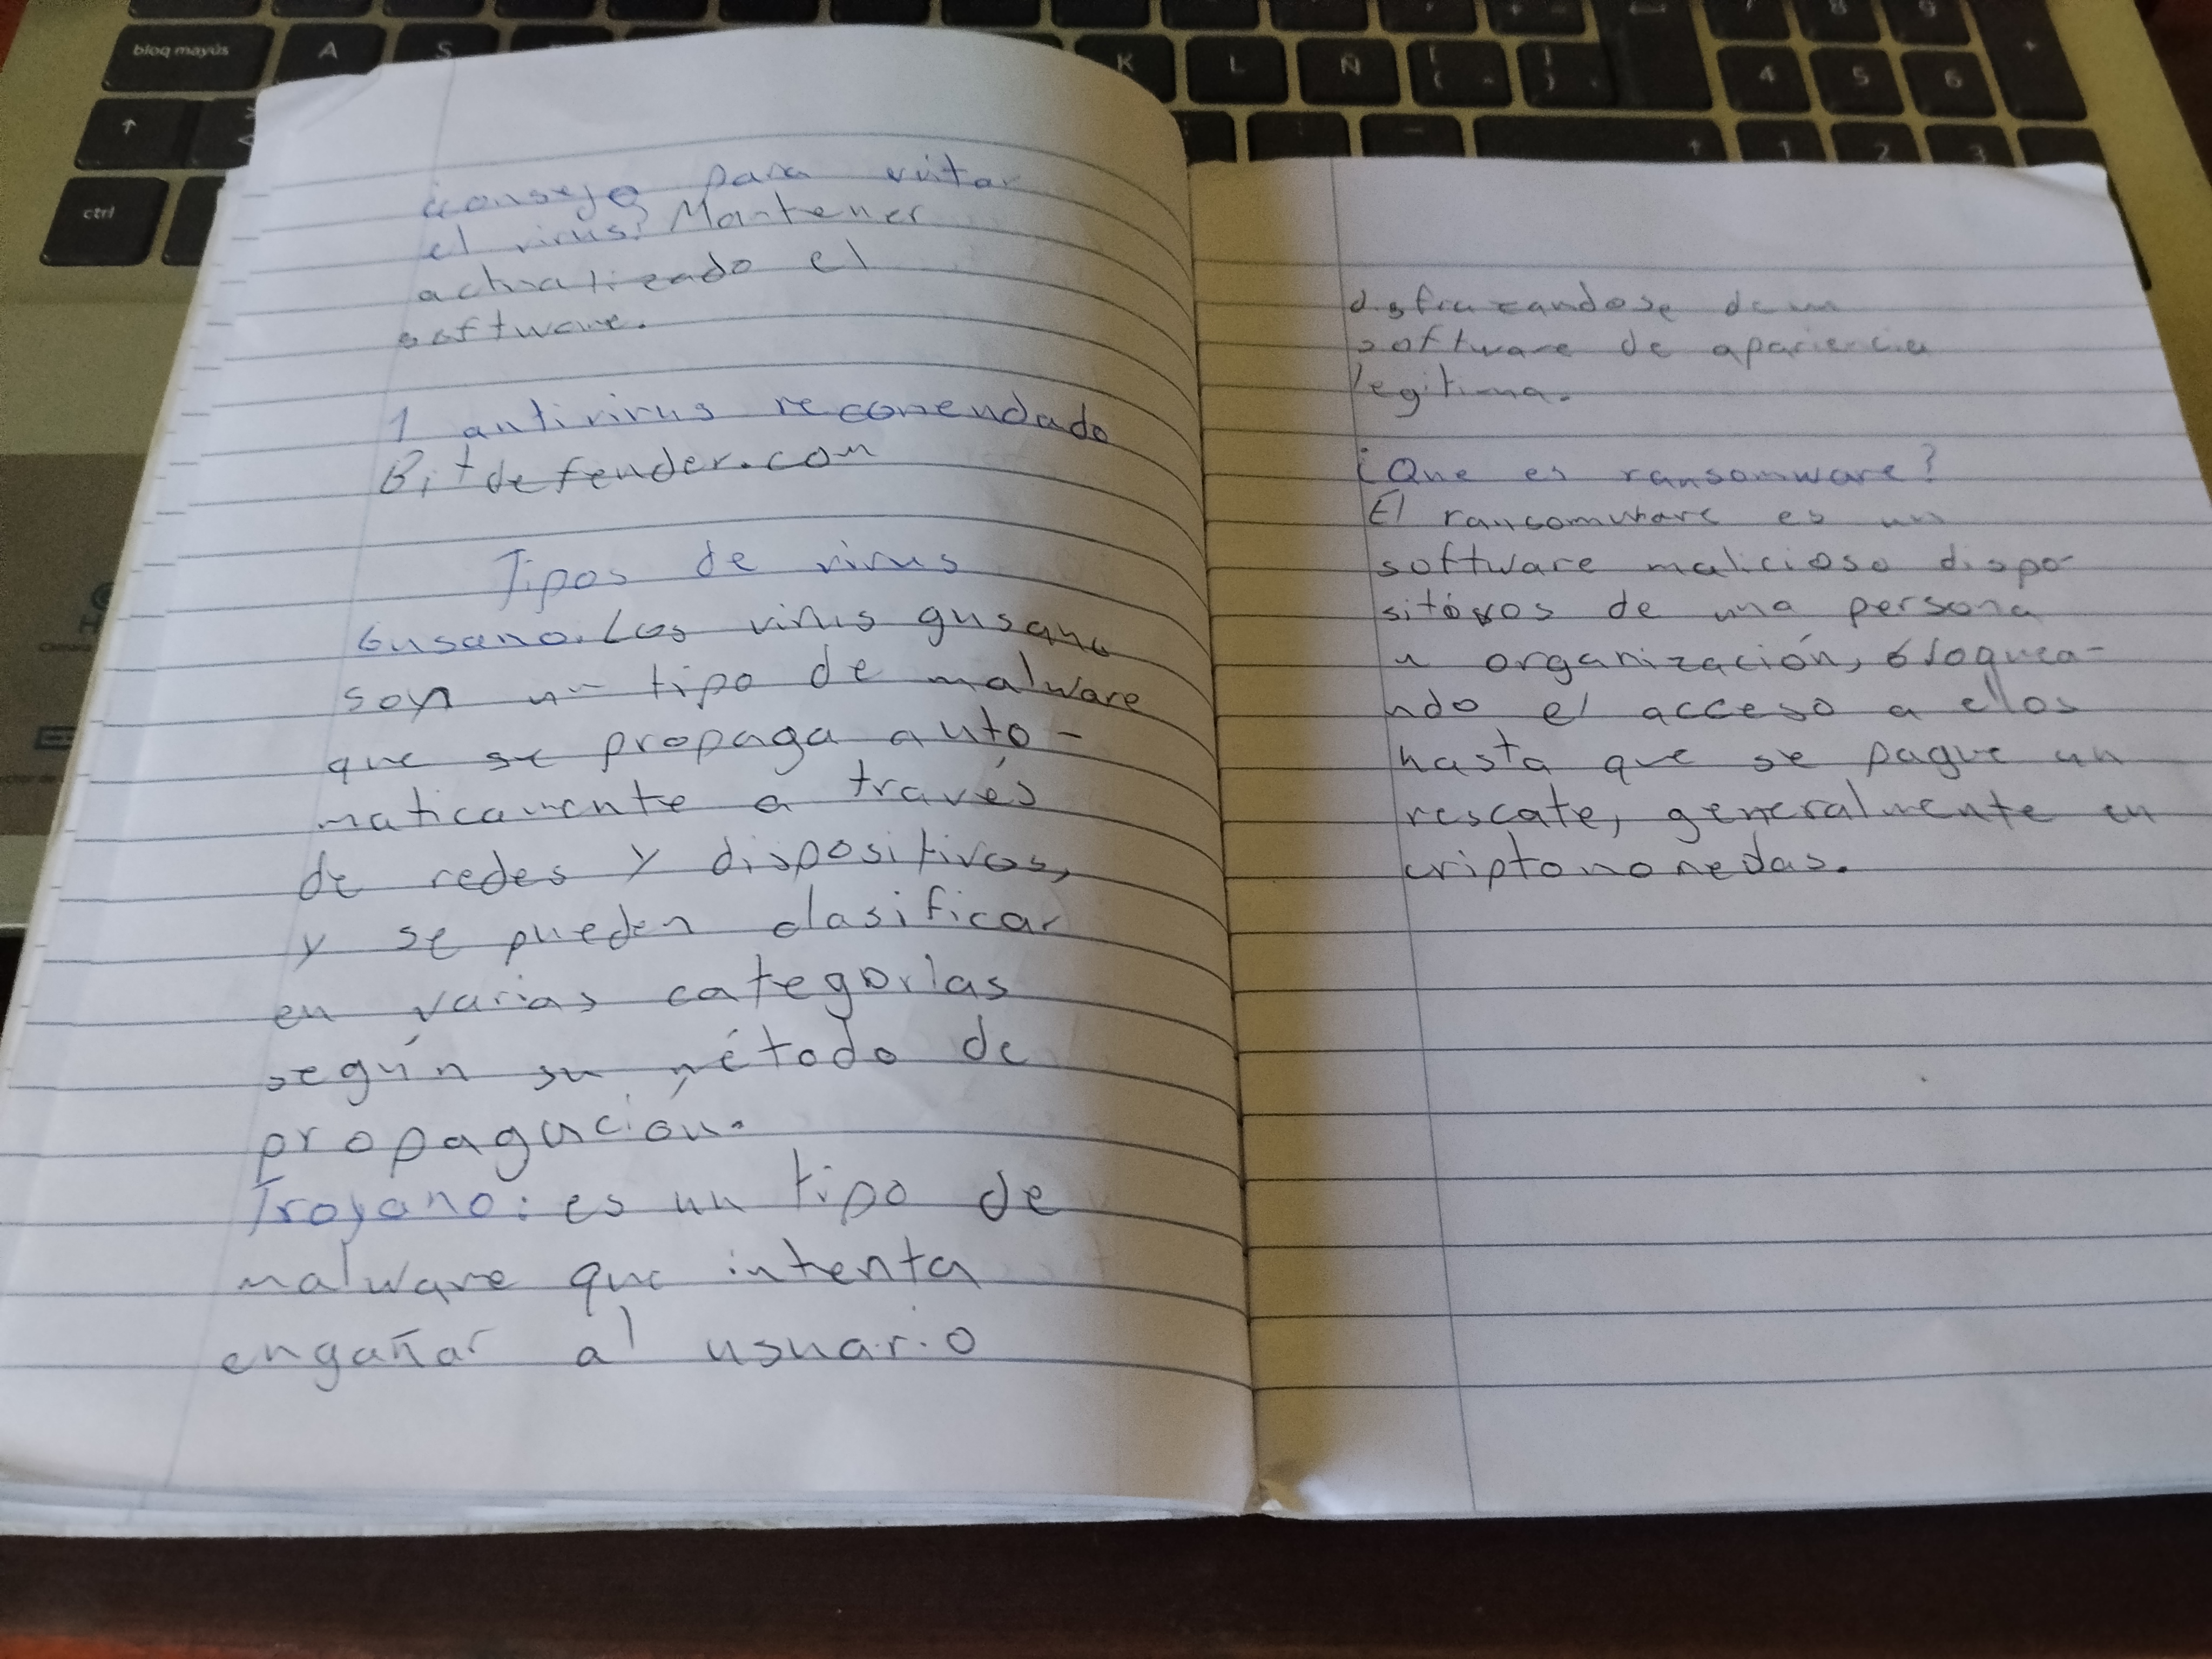 consejo para evitar
el virus: Mantener
actualizado el
software.
1 antivirus recomendado
Bitdefender.com
Tipos de virus
Gusano. Los virus gusano
son un tipo de malware
que se propaga auto-
maticamente a través
de redes y dispositivos,
y se pueden clasificar
en varias categorías
según su método de
propagación.
Troyano: es un tipo de
malware que intenta
engañar al usuario
disfrazandose de un
software de apariencia
legitima.
¿Que es ransomware?
El rancomware es un
software malicioso dispo-
sitóvos de una persona
u organización, bloquea-
ndo el acceso a ellos
hasta que se pague un
rescate, generalmente en
criptomonedas.
bloq mayús
A
S
K
L
Ñ
4
5
6
1
2
3
7
8
9
ctrl